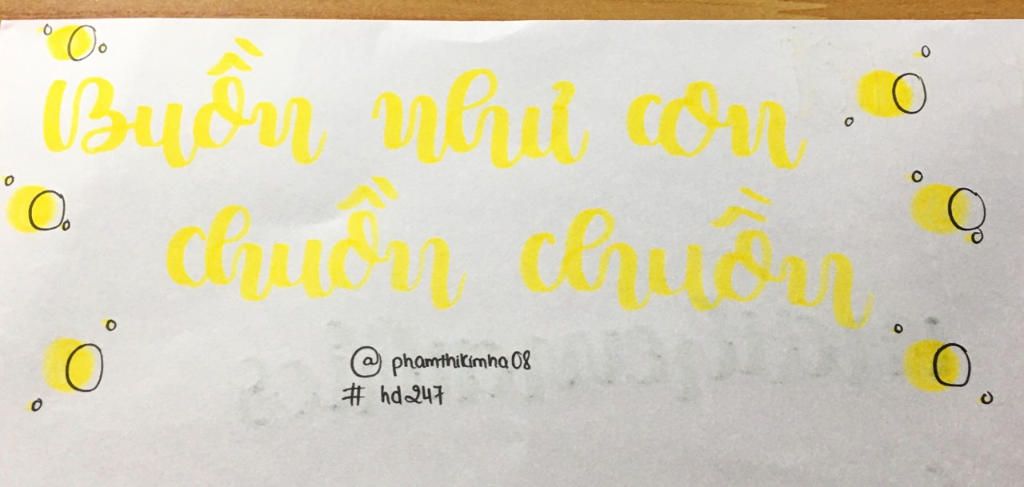 Buồn như con
chuồn chuồn
@ phamthikimha08
# hd247